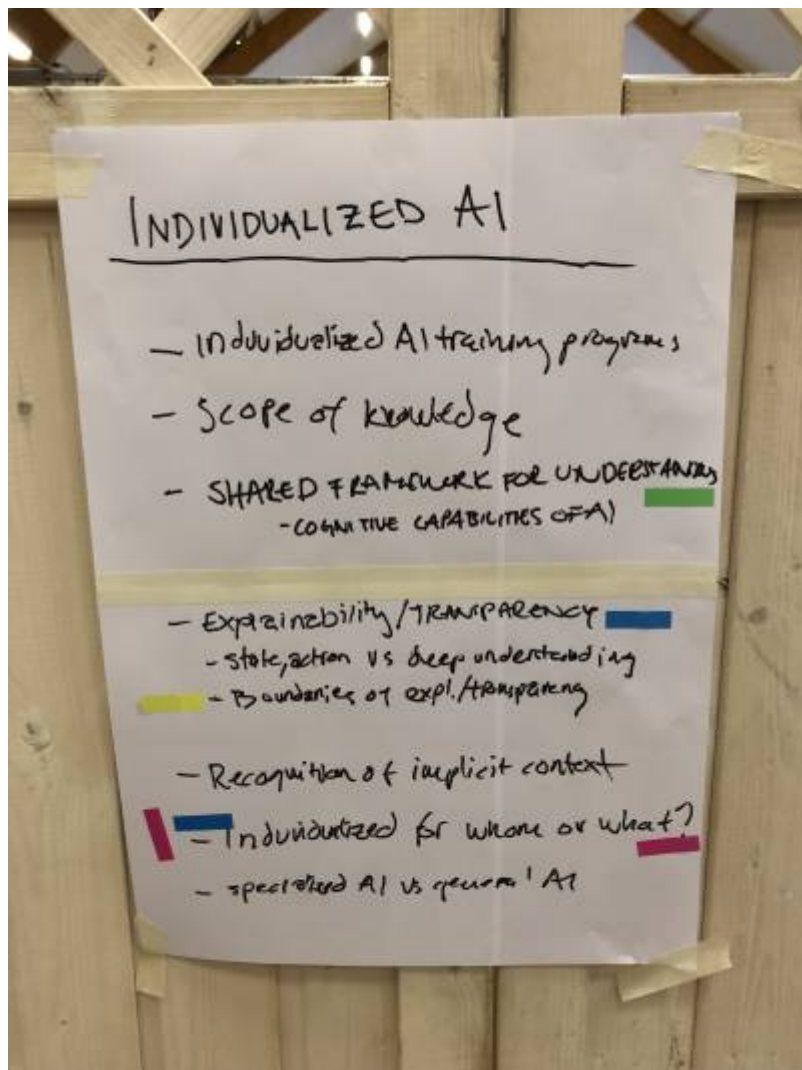 INDIVIDUALIZED AI
- Individualized AI training programs
- Scope of knowledge
- SHARED FRAMEWORK FOR UNDERSTANDING
- COGNITIVE CAPABILITIES OF AI
- Explainability/TRANSPARENCY
- State, action vs deep understanding
- Boundaries of expl./transparency
- Recognition of implicit context
- Individualized for whom or what?
- specialized AI vs general AI